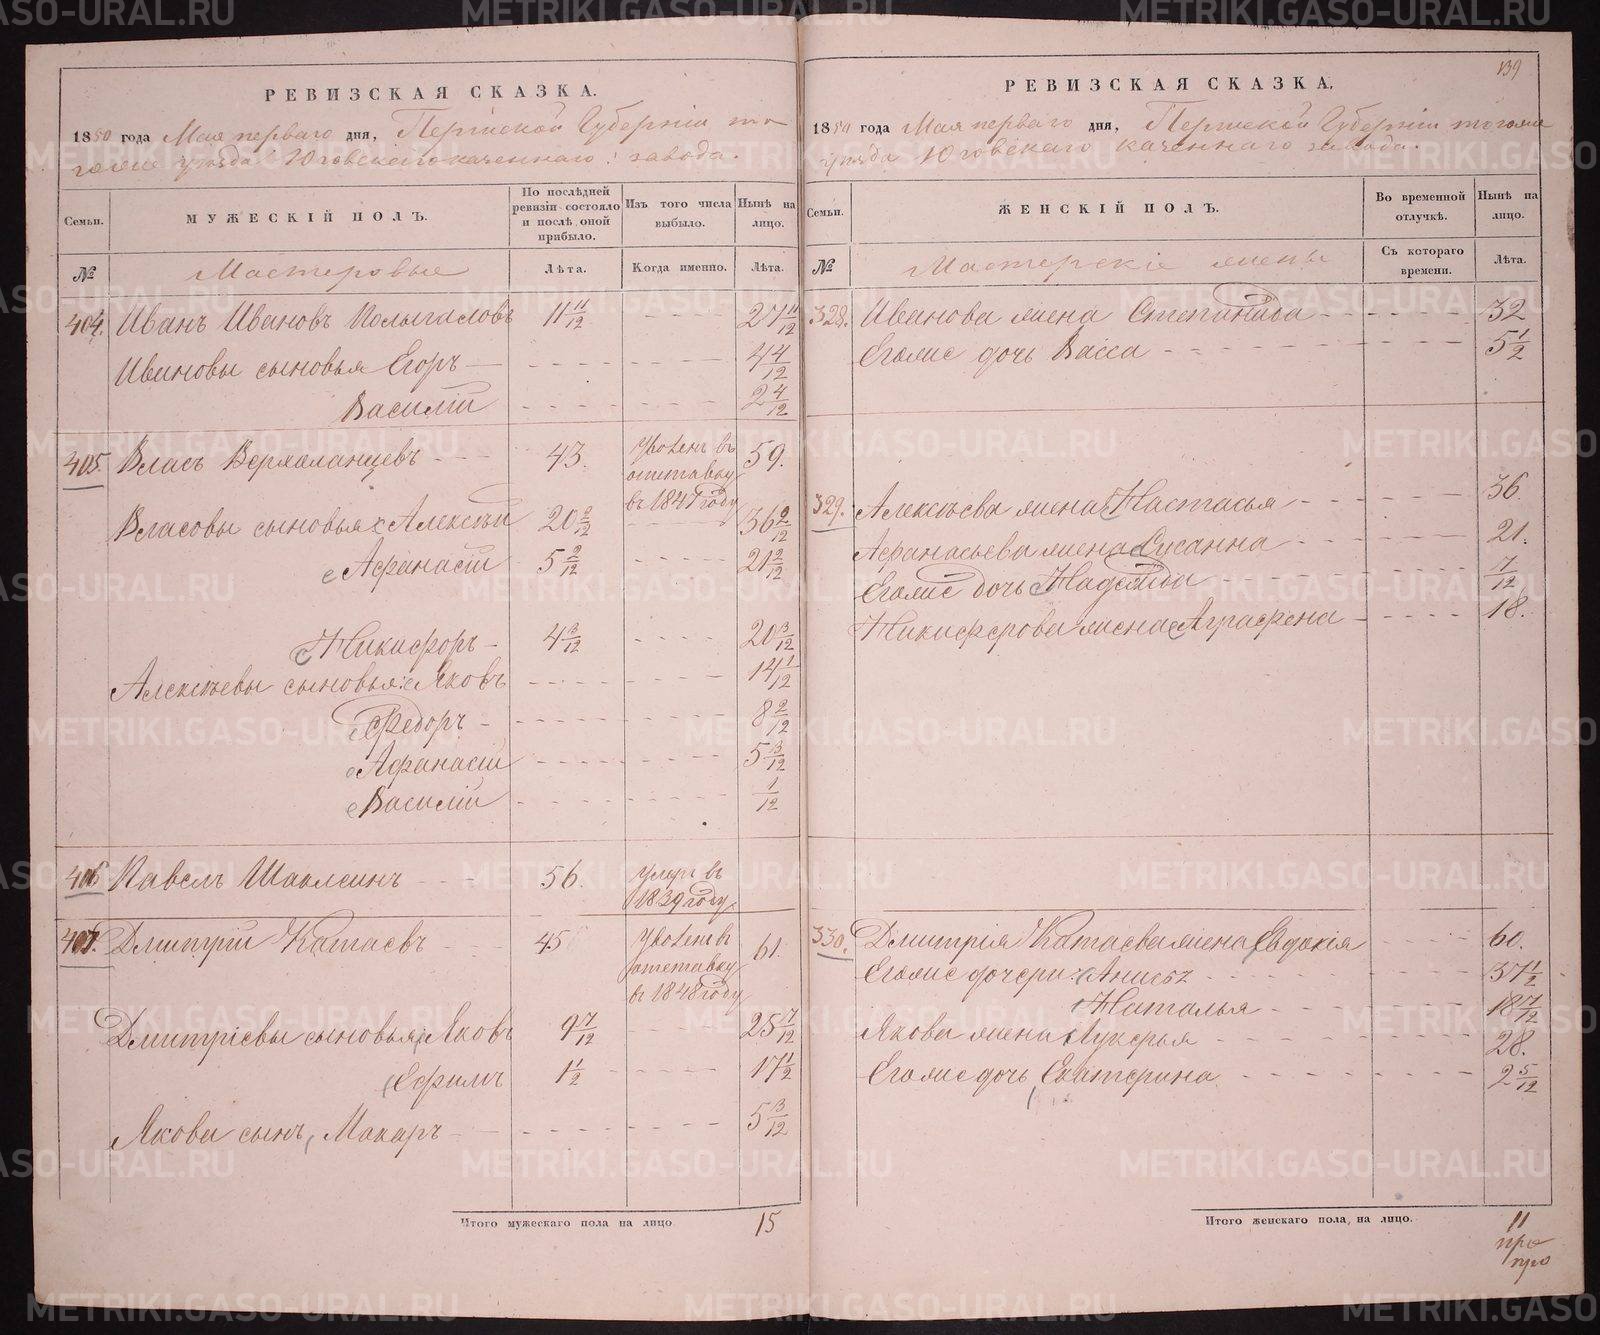 РЕВИЗСКАЯ СКАЗКА.
1850 года Мая перваго дня, Пермской Губернiи то-
гоже уѣзда Юговскаго казеннаго завода.
Семьи.
МУЖЕСКIЙ ПОЛЪ.
По послѣдней ревизiи состояло и послѣ оной прибыло.
Изъ того числа выбыло.
Нынѣ на лицо.
№
Мастеровые
Лѣта.
Когда именно.
Лѣта.
404. Иванъ Ивановъ 11 11/12 27 11/12
Ивановы сыновья Егоръ 4 4/12
Василiй 2 4/12
405. Власъ Верхаланцевъ 43. Уволенъ въ отставку въ 1847 году 59.
Власовы сыновья Алексѣй 20 2/12 36 2/12
Афанасiй 5 2/12 21 2/12
Никифоръ 4 3/12 20 3/12
Алексѣевы сыновья: Яковъ 14 1/12
Федоръ 8 2/12
Афанасiй 5 3/12
Василiй 1/12
406 Павелъ 56. умеръ въ 1839 году
407. Дмитрiй Катаевъ 45 Уволенъ въ отставку въ 1848 году 61.
Дмитрiевы сыновья Яковъ 9 7/12 25 7/12
Ефимъ 1 1/2 17 1/2
Якова сынъ, Макаръ 5 3/12
Итого мужескаго пола на лицо 15
139
РЕВИЗСКАЯ СКАЗКА.
1850 года Мая перваго дня, Пермской Губернiи тогоже
уѣзда Юговскаго казеннаго завода.
Семьи.
ЖЕНСКIЙ ПОЛЪ.
Во временной отлучкѣ.
Нынѣ на лицо.
№
Мастерскiе жены
Съ котораго времени.
Лѣта.
328. Иванова жена Степанида 32
Егоже дочь Васса 5 1/2
329. Алексѣева жена Настасья 36.
Афанасьева жена Сусанна 21.
Егоже дочь Надежда 7/12
Никифорова жена Аграфена 18.
330. Дмитрiя Катаева жена Евдокiя 60.
Егоже дочери: 37 1/2
Наталья 18 7/12
Якова жена Лукерья 28.
Егоже дочь Екатерина 2 5/12
Итого женскаго пола, на лицо. 11
METRIKI.GASO-URAL.RU